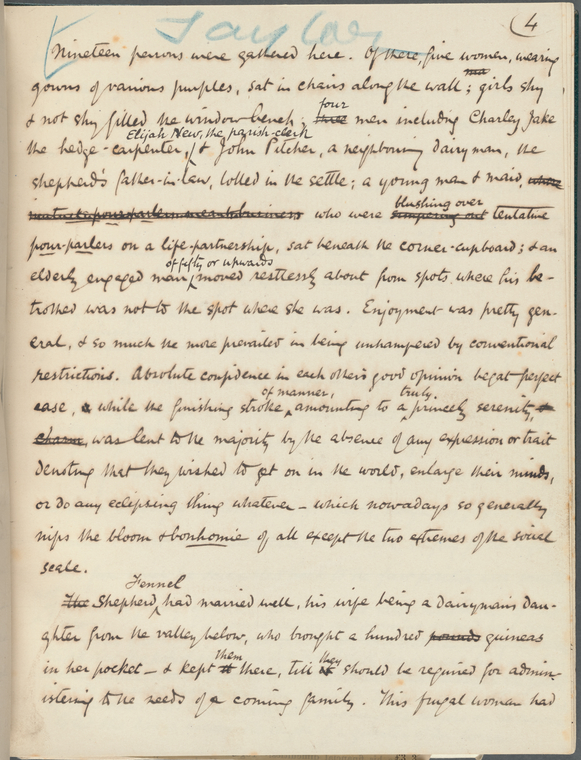 Taylor
4
Nineteen persons were gathered here. Of these, five women, wearing
gowns of various purples, sat in chairs along the wall; girls shy
four
& not shy filled the window-bench; three men including Charley Jake
Elijah New, the parish-clerk
the hedge-carpenter, & John Pitcher, a neighbouring dairyman, the
shepherd's father-in-law, lolled in the settle; a young man & maid,
blushing over
who were simpering out tentative
pour-parlers on a life-partnership, sat beneath the corner-cupboard; & an
of fifty or upwards
elderly engaged man moved restlessly about from spots where his be-
trothed was not to the spot where she was. Enjoyment was pretty gen-
eral, & so much the more prevailed in being unhampered by conventional
restrictions. Absolute confidence in each other's good opinion begat perfect
of manner, truly
ease, & while the finishing stroke, amounting to a princely serenity, &
charm, was lent to the majority by the absence of any expression or trait
denoting that they wished to get on in the world, enlarge their minds,
or do any eclipsing thing whatever – which nowadays so generally
nips the bloom & bonhomie of all except the two extremes of the social
scale.
Fennel
The Shepherd had married well, his wife being a dairyman's dau-
ghter from the valley below, who brought a hundred pounds guineas
them they
in her pocket – & kept it there, till it should be required for admin-
istering to the needs of a coming family. This frugal woman had